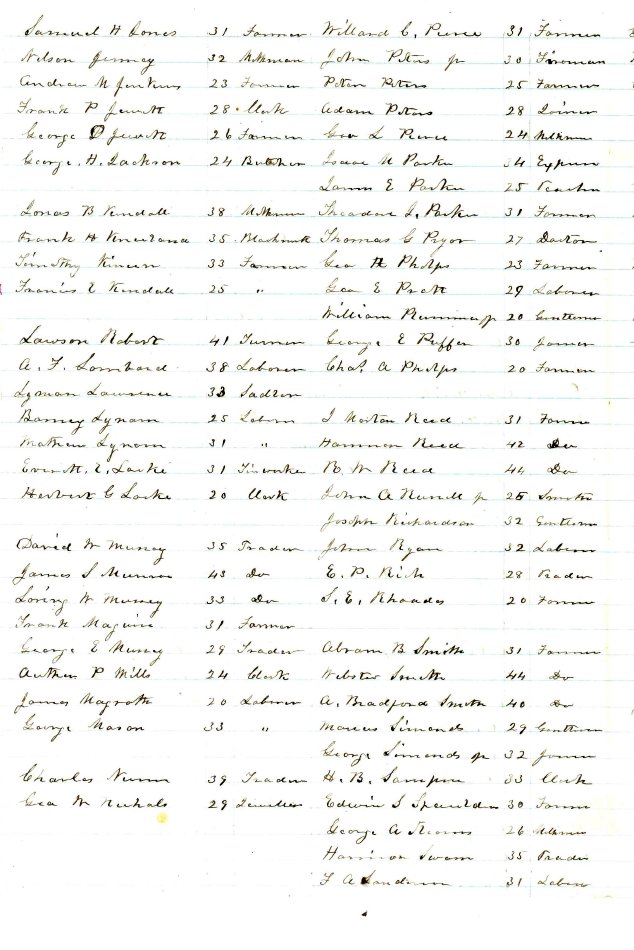 Samuel H Jones 31 Farmer Willard C. Pierce 31 Farmer
Nelson Jenney 32 Milkman John Peters jr 30 Fireman
Andrew M Jenkins 23 Farmer Peter Peters 25 Farmer
Frank P Jewett 28 Clerk Adam Peters 28 Joiner
George O Jewett 26 Farmer Geo L Pierce 24 Milkman
George. H. Jackson 24 Butcher Isaac N Parker 34
James E Parker 25 Teacher
Jonas B Kendall 38 Milkman Theodore J. Parker 31 Farmer
Frank H Kneeland 35 Thomas G Pryor 27 Doctor
Timothy 33 Farmer Geo H Phelps 23 Farmer
Francis E Kendall 25 " Geo E Pratt 29 Laborer
William jr 20
Lawson Robert 41 Turner George E Puffer 30 Joiner
A. F. Lombard 38 Laborer Chas. A Phelps 20 Farmer
Lyman Lawrence 33
Barney Lynam 25 J Morton Reed 31
Mathew Lynam 31 " Hammon Reed 42 Do
Everett. E. Locke 31 R. W Reed 44 Do
Herbert G Locke 20 Clerk John A jr 25
Joseph Richardson 32
David W Muzzey 35 Trader John Ryan 32 Laborer
James S Munroe 43 Do E. P. Rich 28 Trader
Loring W Muzzey 33 Do S. E. Rhoades 20
Frank Maguire 31 Farmer
George E Muzzey 29 Trader Abram B Smith 31 Farmer
P Mills 24 Clerk Webster Smith 44 Do
James Magrath 20 Laborer A. Bradford Smith 40 Do
George Mason 33 " Marcus Simonds 29
George Simonds jr 32
Charles Nunn 39 Trader H. B. Sampson 33 Clerk
Geo W Nichols 29 Jeweller Edwin S Spaulding 30
George A Stearns 26
Harrison Swain 35 Trader
F A Sanderson 31